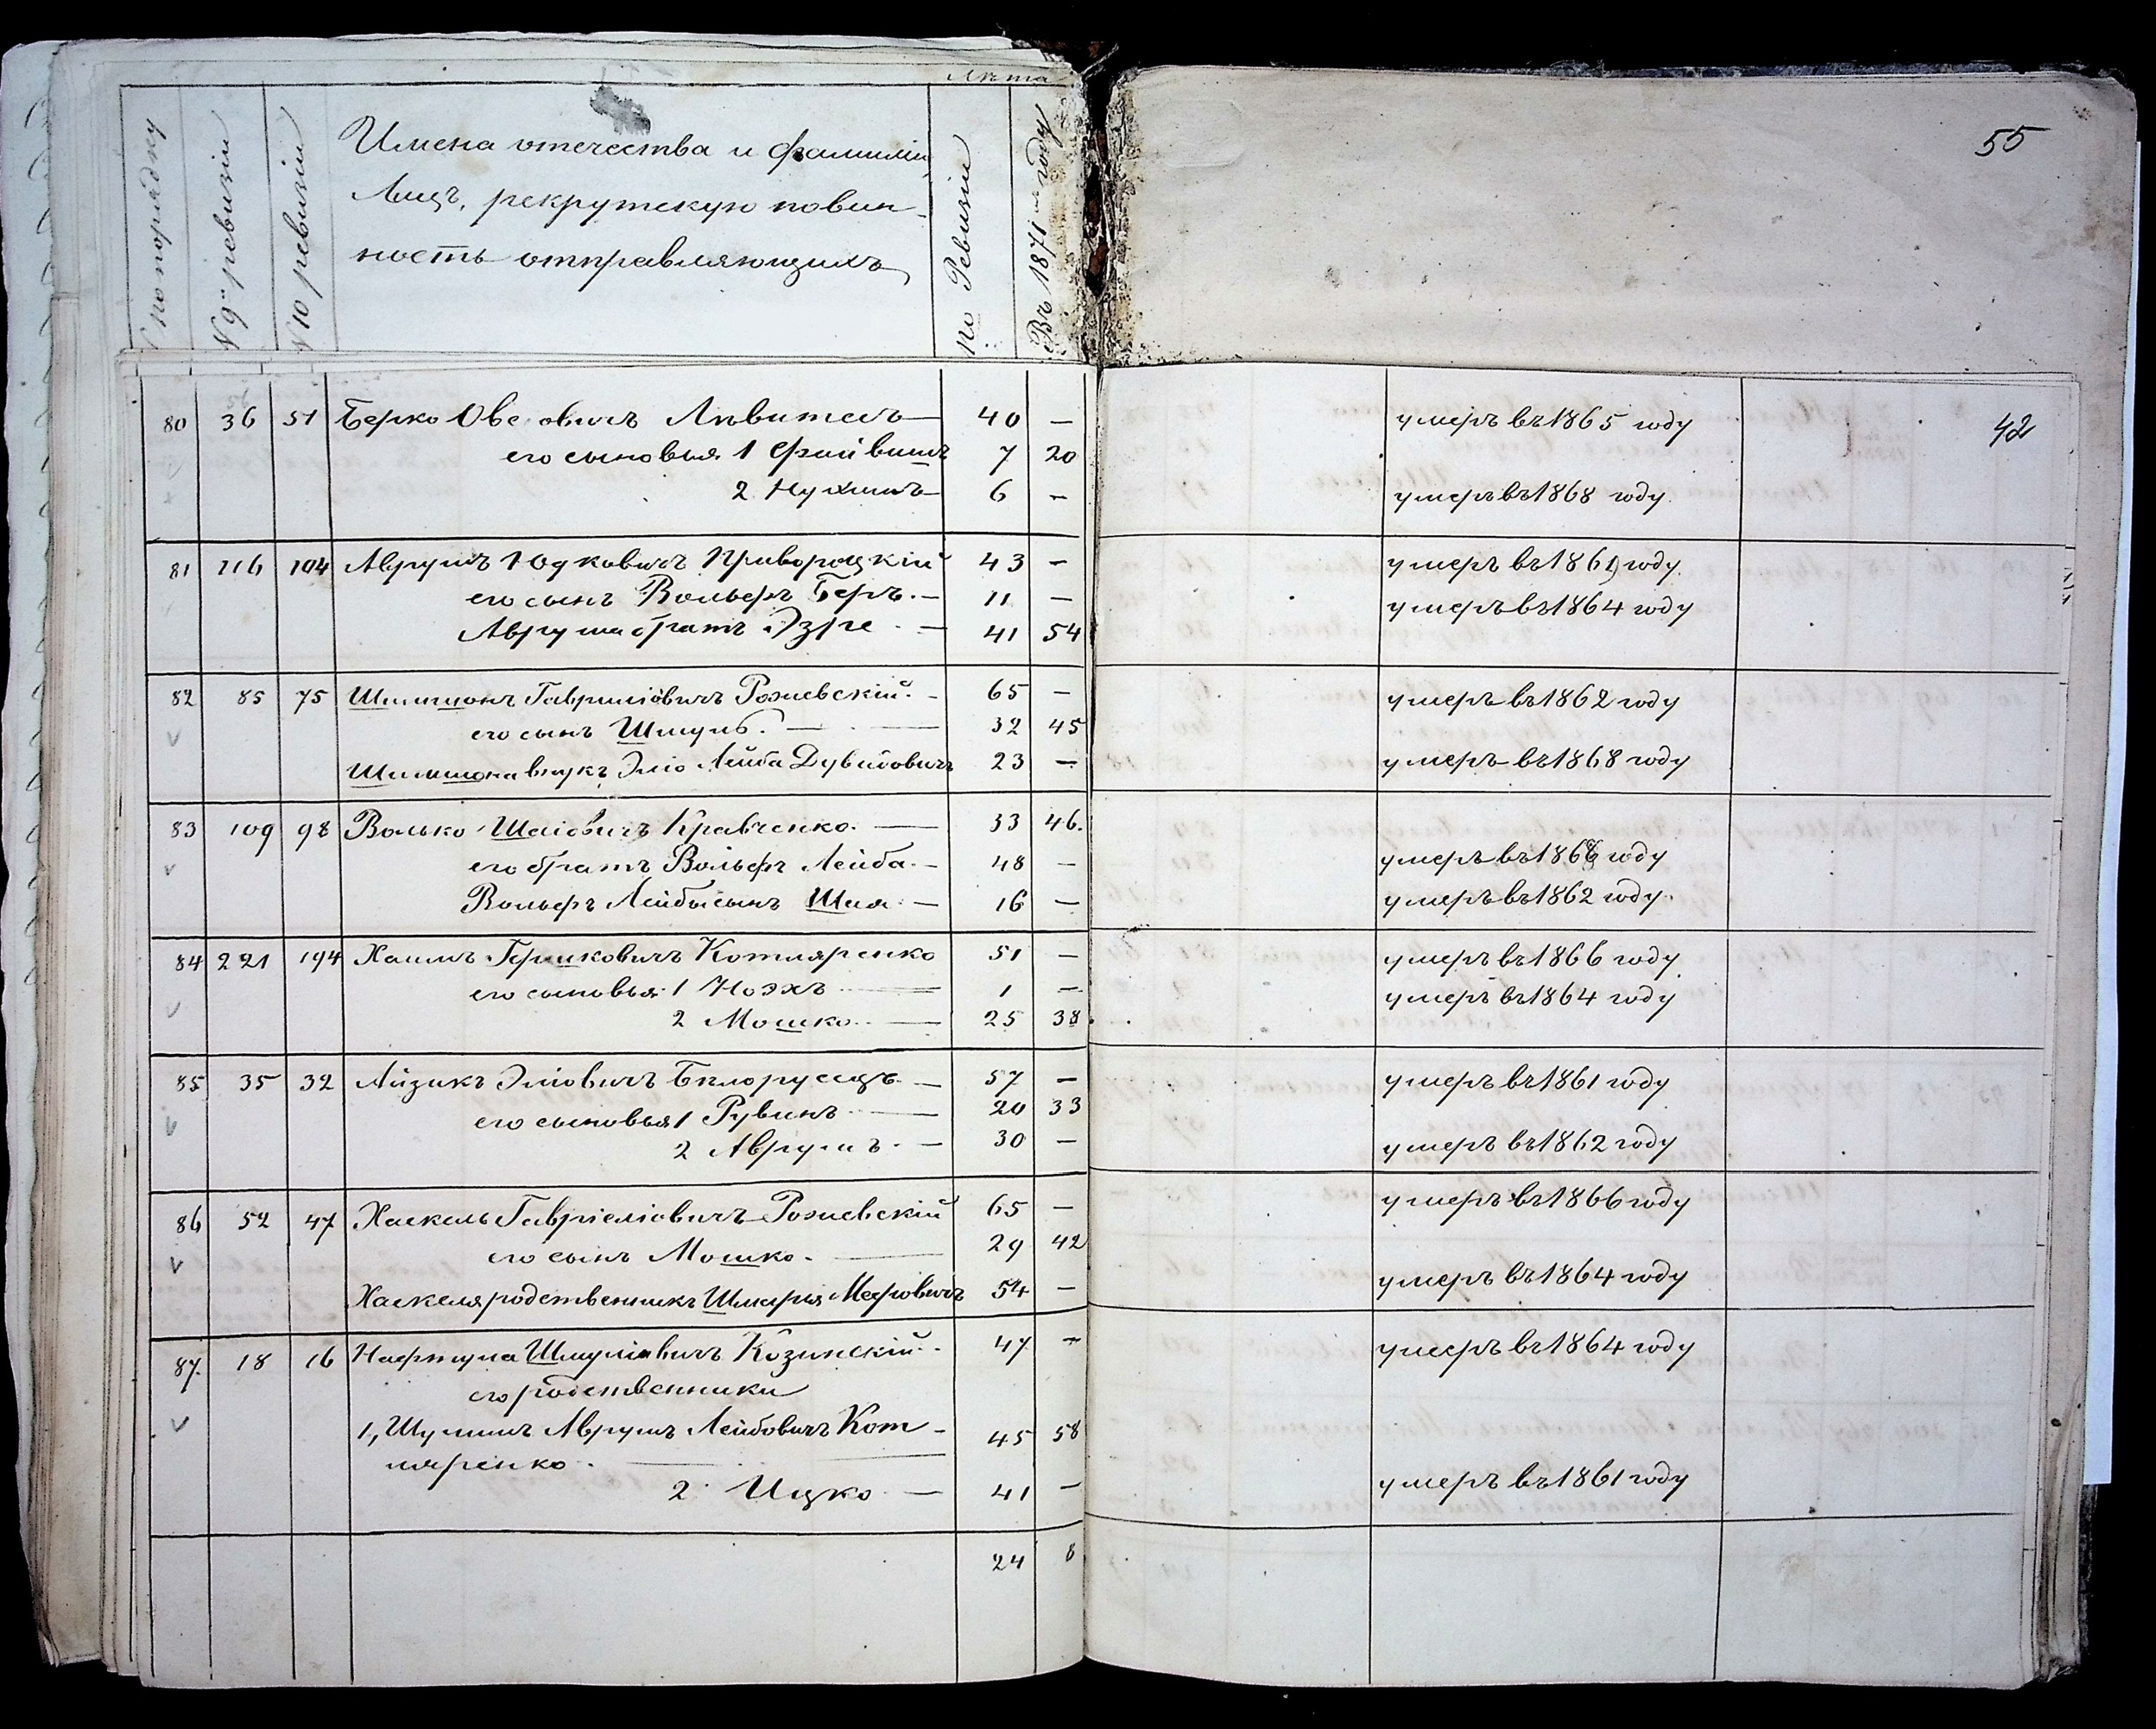 Лѣта
№ по порядку
№ 9й ревизіи
№ 10 ревизіи
Имена отечества и фамиліи
Лицъ, рекрутскую повин-
ность отправляющихъ
по Ревизіи
Въ 1871мъ году
55
42
80 36 51 Берко Ове овичъ 40 — умеръ въ 1865 году
его сыновья 1 Файвишъ 7 20
2 Нухимъ 6 — умеръ въ 1868 году
81 116 104 Аврумъ Юдковичъ Привороцкій 43 — умеръ въ 1861 году
его сынъ Вольфъ Беръ 11 — умеръ въ 1864 году
Аврума братъ Эзре 41 54
82 85 75 Шимшонъ Гавриліовичъ Рожевскій 65 — умеръ въ 1862 году
его сынъ Шмуль 32 45
Шимшона внукъ Эліо Лейба Дувидовичъ 23 — умеръ въ 1868 году
83 109 98 Волько Шаіовичъ Кравченко 33 46.
его братъ Вольфъ Лейба 48 — умеръ въ 1868 году
Вольфъ Лейбы сынъ Шая 16 — умеръ въ 1862 году.
84 221 194 Хаимъ Гершковичъ Котляренко 51 — умеръ въ 1866 году
его сыновья 1 Ноэхъ 1 — умеръ въ 1864 году
2 Мошко 25 38
85 35 32 Айзикъ Эліовичъ Бѣлорусецъ 57 — умеръ въ 1861 году
его сыновья 1 Рувинъ 20 33
2 Аврумъ 30 — умеръ въ 1862 году
86 52 47 Хаскель Гавріеліовичъ Рожевскій 65 — умеръ въ 1866 году
его сынъ Мошко 29 42
Хаскеля родственникъ Шмерыя Меровичъ 54 — умеръ въ 1864 году
87. 18 16 Нафтула Шмуліовичъ Козинскій 47 — умеръ въ 1864 году
его родственники
1, Шулимъ Аврумъ Лейбовичъ Кот- 45 58
ляренко
2 Ицко 41 — умеръ въ 1861 году
24 8